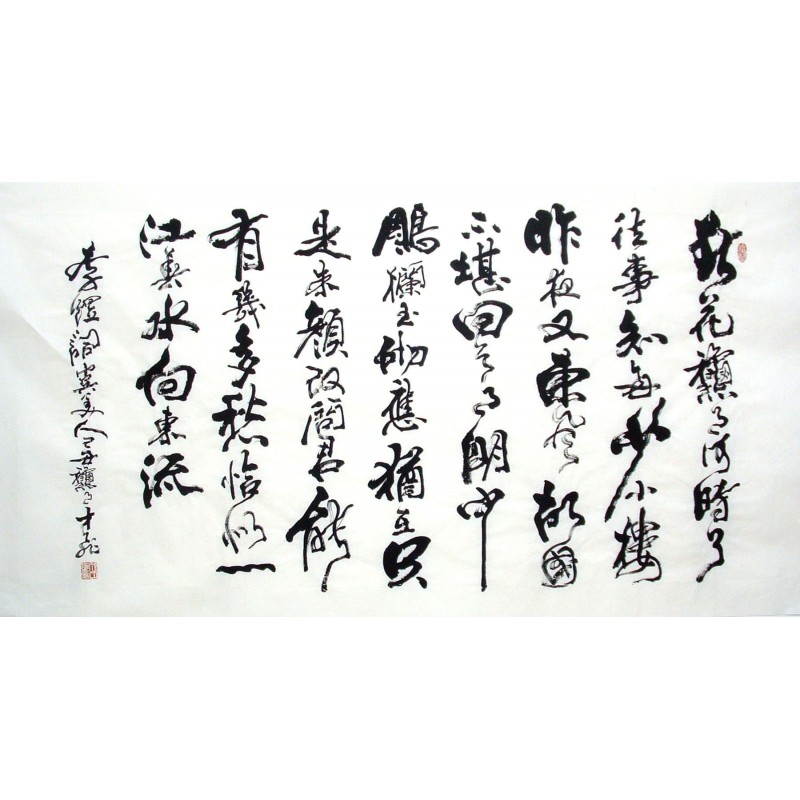 春花龝月何時了
往事知多少小樓
昨夜又東風故國
不堪回首月明中
鵰欄玉砌應猶在只
是朱顏改問君能
有幾多愁恰似一
江春水向東流
李煜詞虞美人己丑龝月